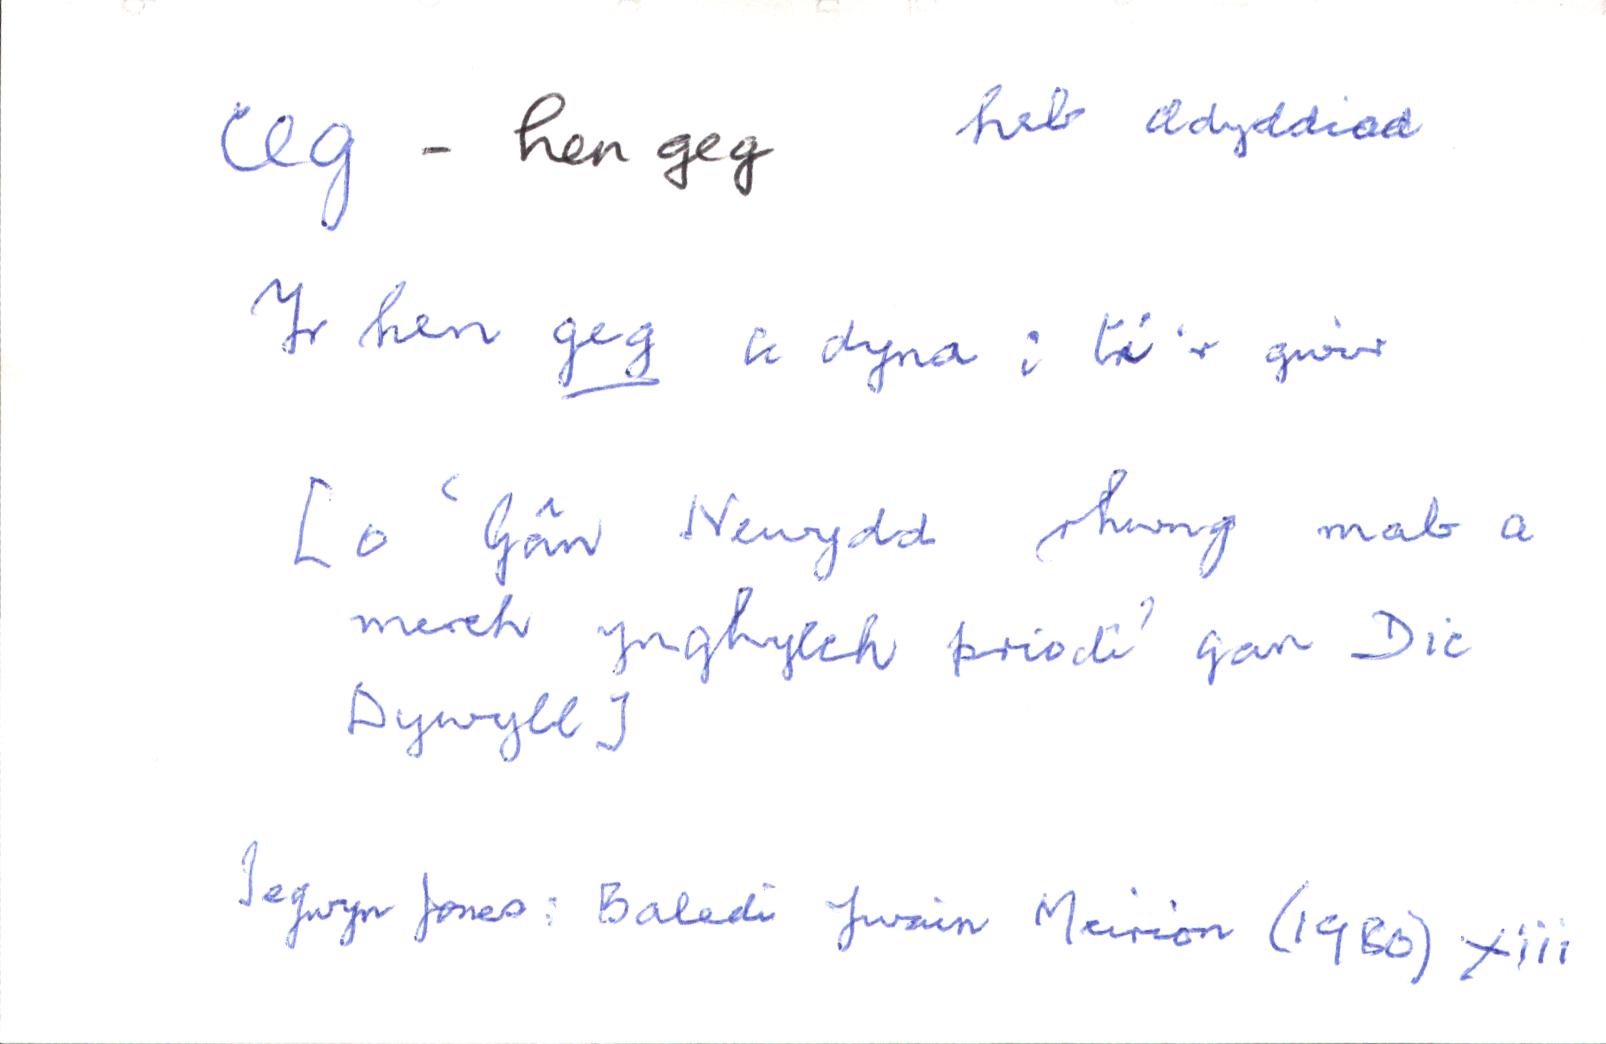 ceg - hen geg heb ddyddiad
Yr hen geg a dyna i ti'r gwir
[o 'Gân Newydd rhwng mab a
merch ynghylch priodi' gan Dic
Dywyll]
Tegwyn Jones: Baledi Ywain Meirion (1980) xiii